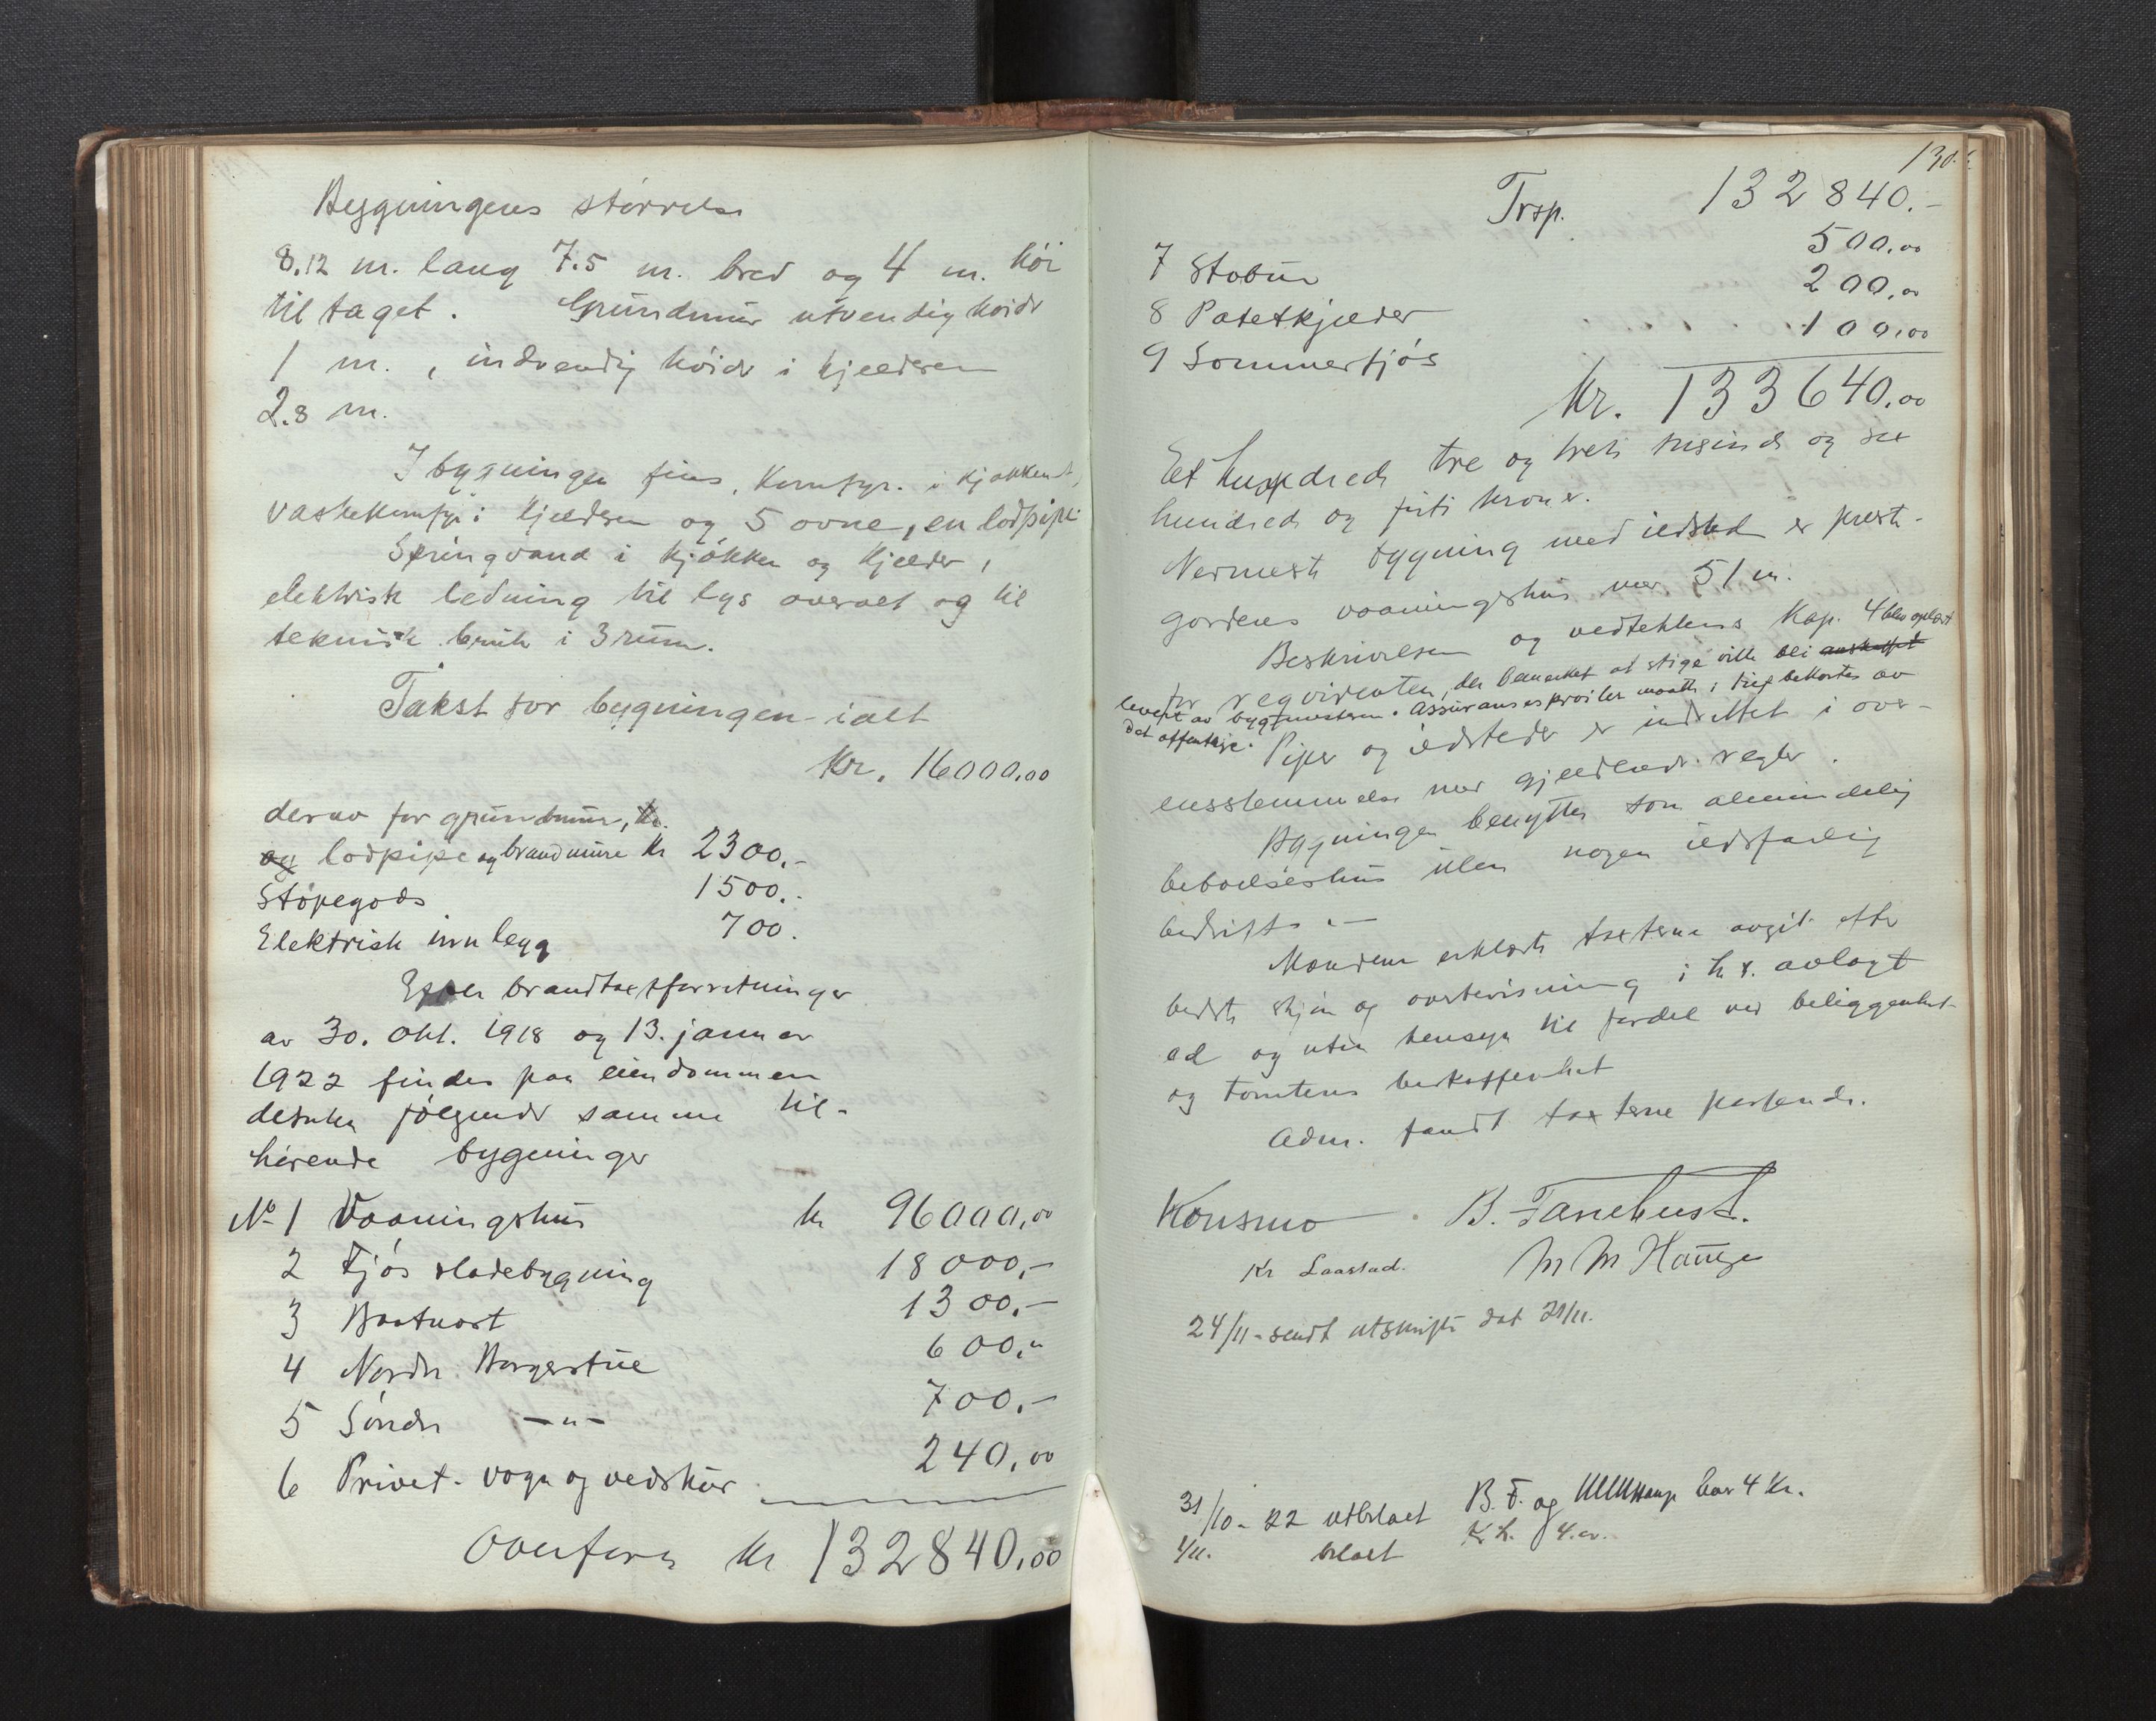 Bygningens størrelse
8.12 m. lang 7.5 m. bred og 4 m. høi
til taget. Grundmur utvendig høide
1 m., indvendig høide i kjelderen
2.8 m.
I bygningen fins, komfyr i kjøkkenet,
vaskekomfyr i kjelderen og 5 ovne, en lodpipe.
Springvand i kjøkken og kjelder,
elektrisk ledning til lys overalt og til
teknisk bruk i 3 rum.
Takst for bygningen ialt
Kr. 16000,00
derav for grundmur, kr.
og lodpipe og brandmure kr 2300,-
Støpegods 1500.-
Elektrisk innlegg 700.
Efter brandtaxtforretninger
av 30. okt. 1918 og 13. januar
1922 findes paa eiendommen
desuten følgende samme til-
hørende bygninger
No 1 Vaaningshus kr 96000,00
2 Fjøs & ladebygning 18000,-
3 Baatnaust 1300.-
4 Nordre Borgerstue 600,-
5 Søndre -"- 700.-
6 Privet- vogn og vedskur 240,00
Overføres kr 132840,00
130.
Trsp. 132840.-
7 Stabur 500,00
8 Potetkjelder 200,00
9 Sommerfjøs 100,00
Kr. 133640,00
Et hundrede tre og treti tusinde og sex
hundrede og firti kroner.
Nermeste bygning med ildsted er preste-
gardens vaaningshus mer 51 m.
Beskrivelsen og vedtektens Kap. 4 blev oplæst
for reqvirenten, der bemerket at stige vilde bli anskaffet
levert av bygmesteren. Assuransesprøiter maatte i tilf bekostes av
det offentlige. Piper og ildsteder er indrettet i over-
ensstemmelse med gjeldende regler.
Bygningen benyttes som almindelig
beboelseshus uten nogen ildsfarlig
bedrift. -
Mændene erklærte taxterne avgit efter
bedste skjøn og overbevisning i h. t. avlagt
ed og uten hensyn til fordel ved beliggenhet
og tomtens beskaffenhet
Adm. fandt taxterne passende.
Konsmo B. Fanehust.
Kr Laastad. M M Hauge
24/11- sendt utskrift dat 21/11.
31/10- 22 utbetalt B. F. og MMHauge hver 4 kr.
1/11. betalt K. L. 4. "